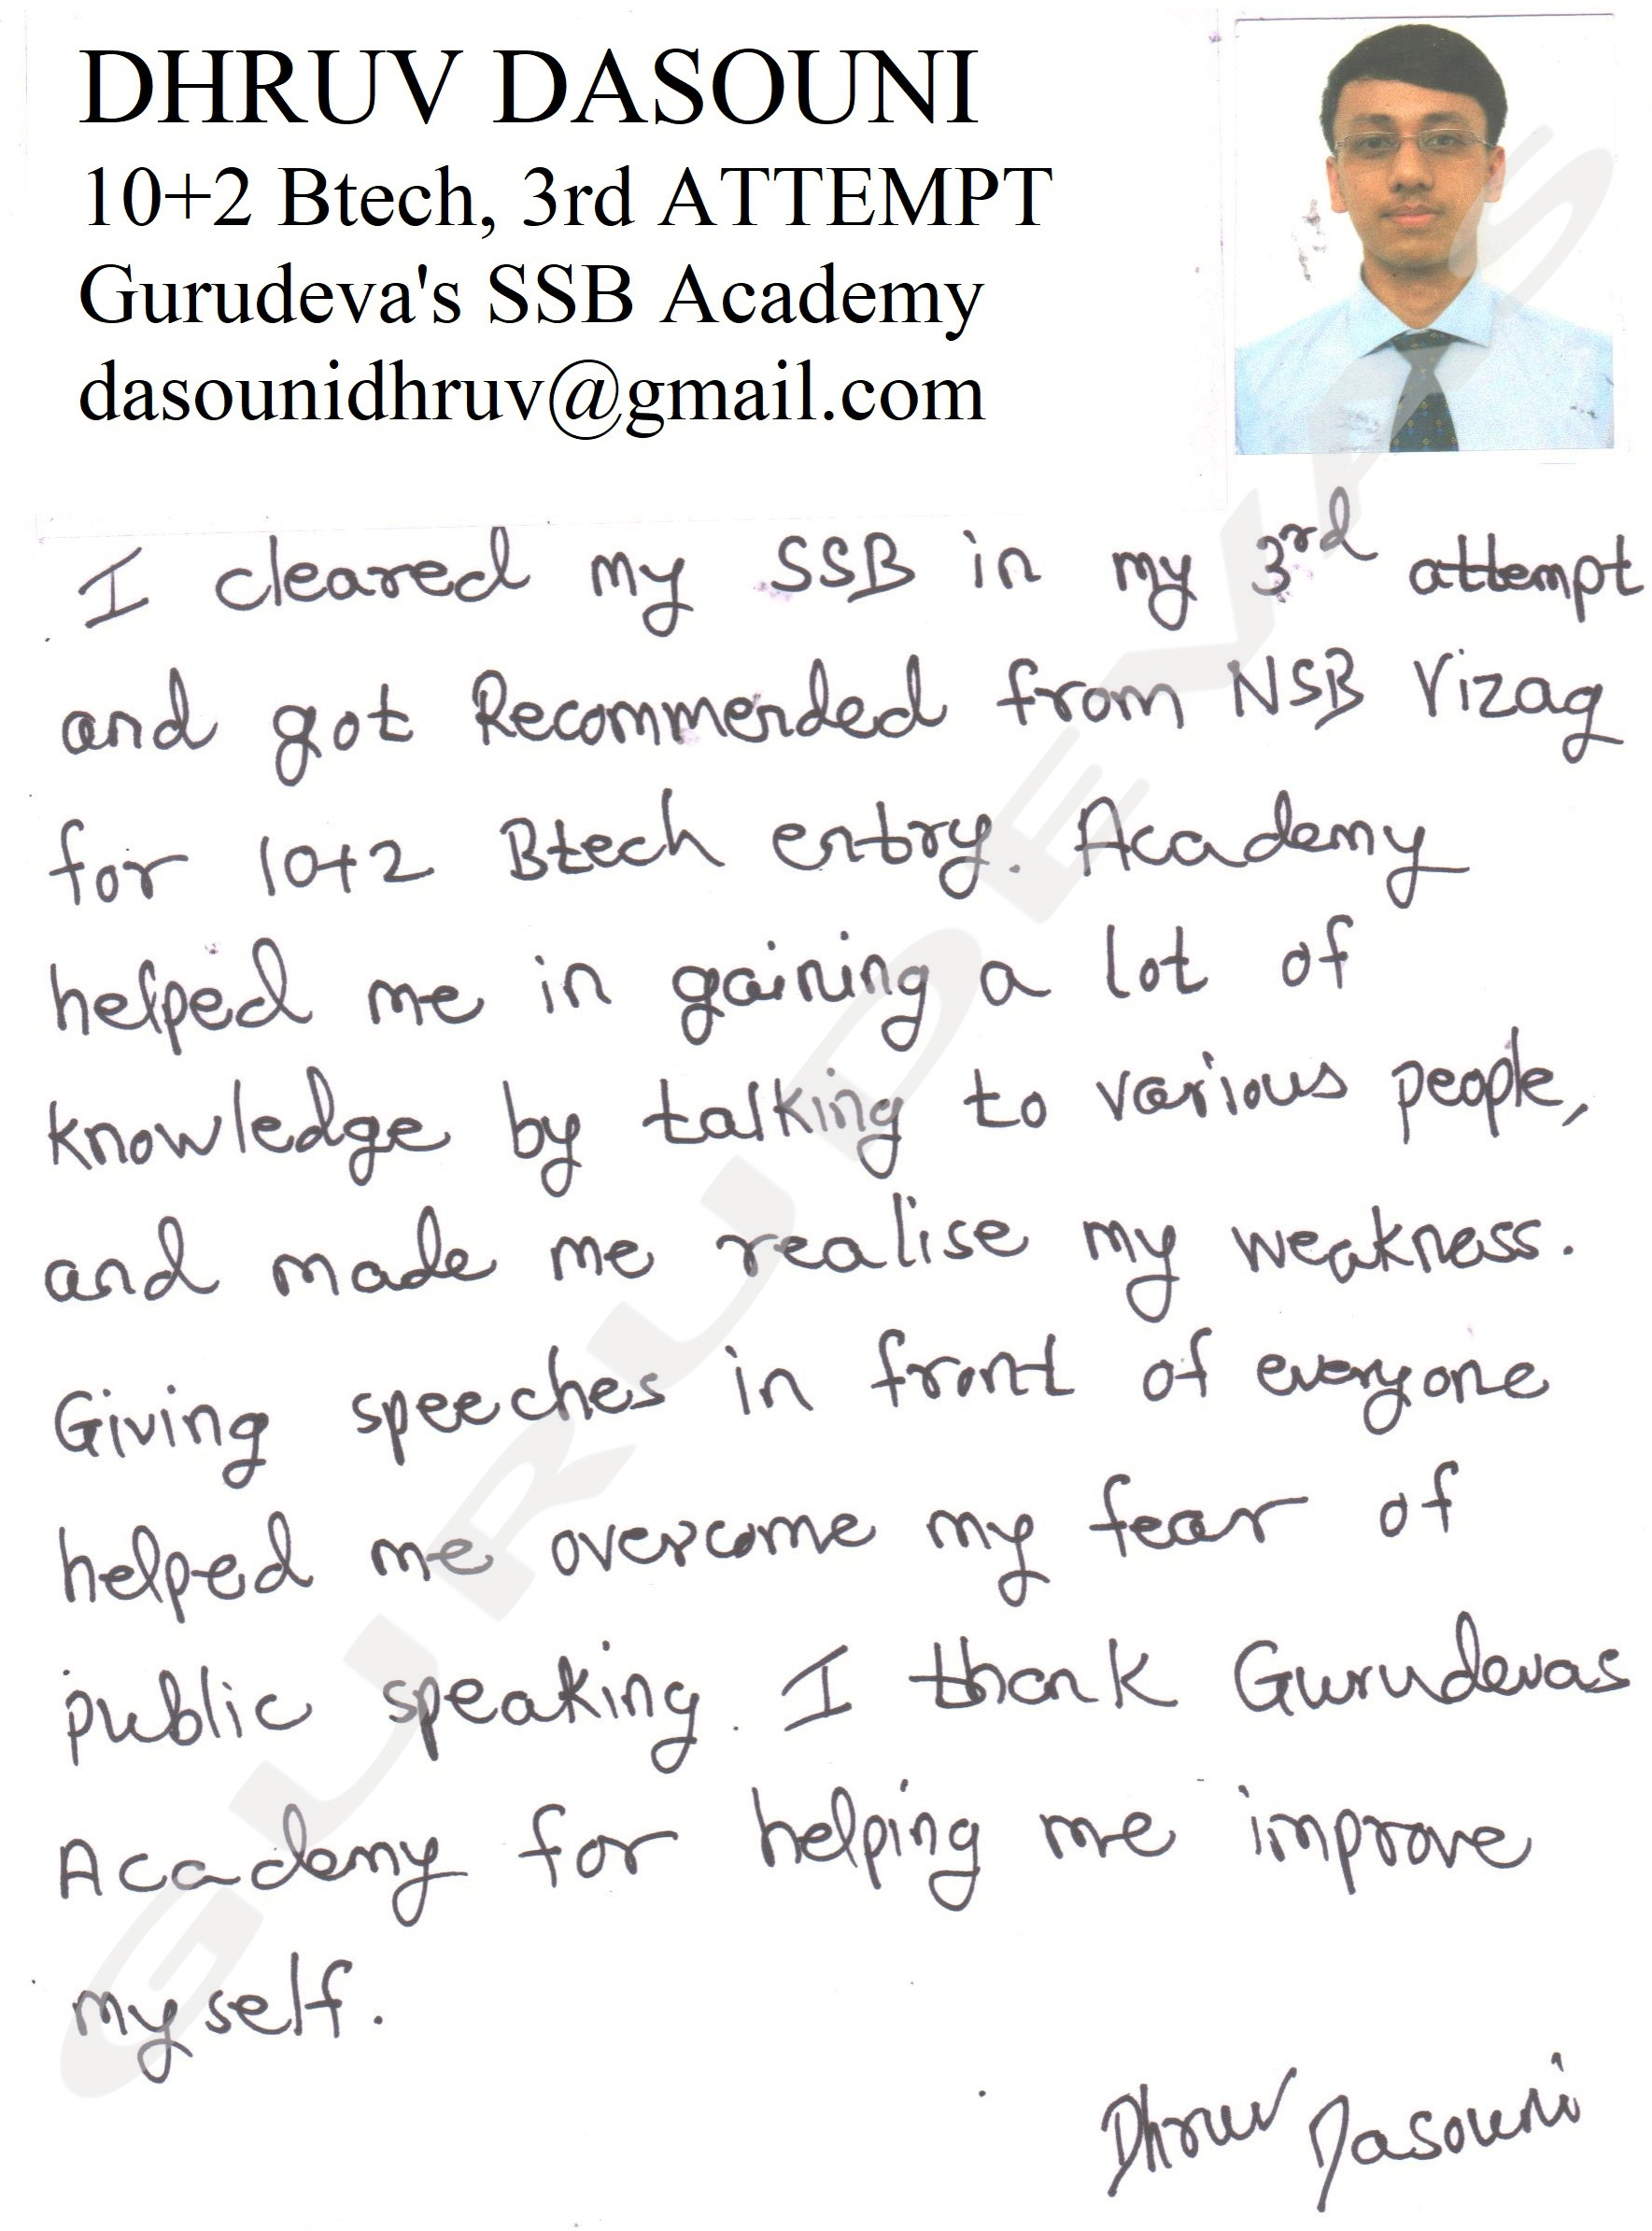 DHRUV DASOUNI
10+2 Btech, 3rd ATTEMPT
Gurudeva's SSB Academy
dasounidhruv@gmail.com
I cleared my SSB in my 3rd attempt
and got Recommended from NSB Vizag
for 10+2 Btech entry. Academy
helped me in gaining a lot of
knowledge by talking to various people,
and made me realise my weakness.
Giving speeches in front of everyone
helped me overcome my fear of
public speaking. I thank Gurudevas
Academy for helping me improve
myself.
Dhruv Dasouni
GURUDEVAS